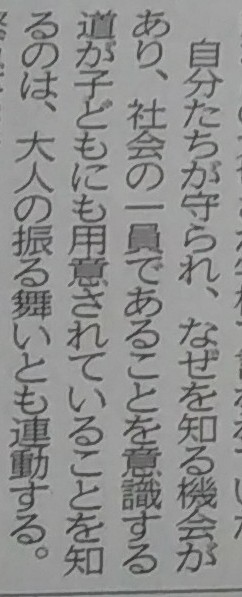 自分たちが守られ、なぜを知る機会が
あり、社会の一員であることを意識する
道が子どもにも用意されていることを知
るのは、大人の振る舞いとも連動する。